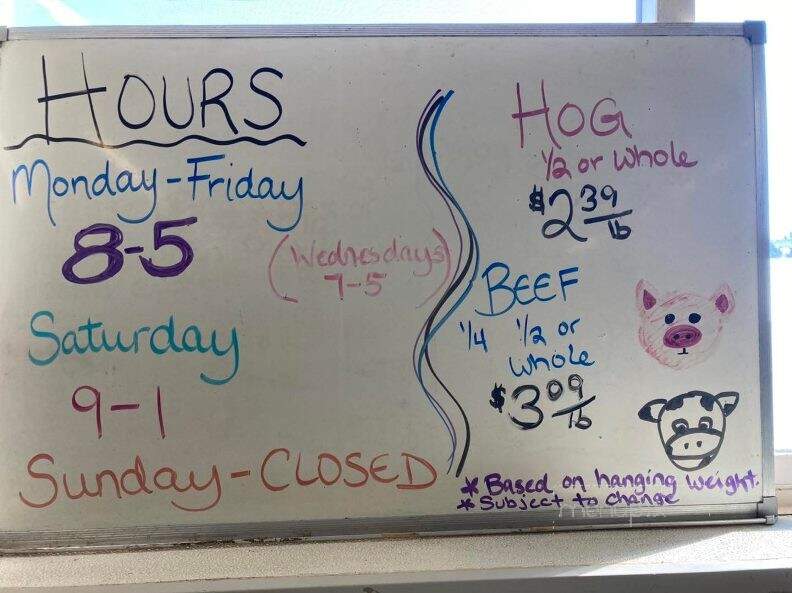 HOURS
Monday-Friday
8-5
(Wednesdays
7-5)
Saturday
9-1
Sunday-CLOSED
HOG
1/2 or whole
$2 39/lb
BEEF
1/4 1/2 or
whole
$3 09/lb
* Based on hanging weight.
* Subject to change